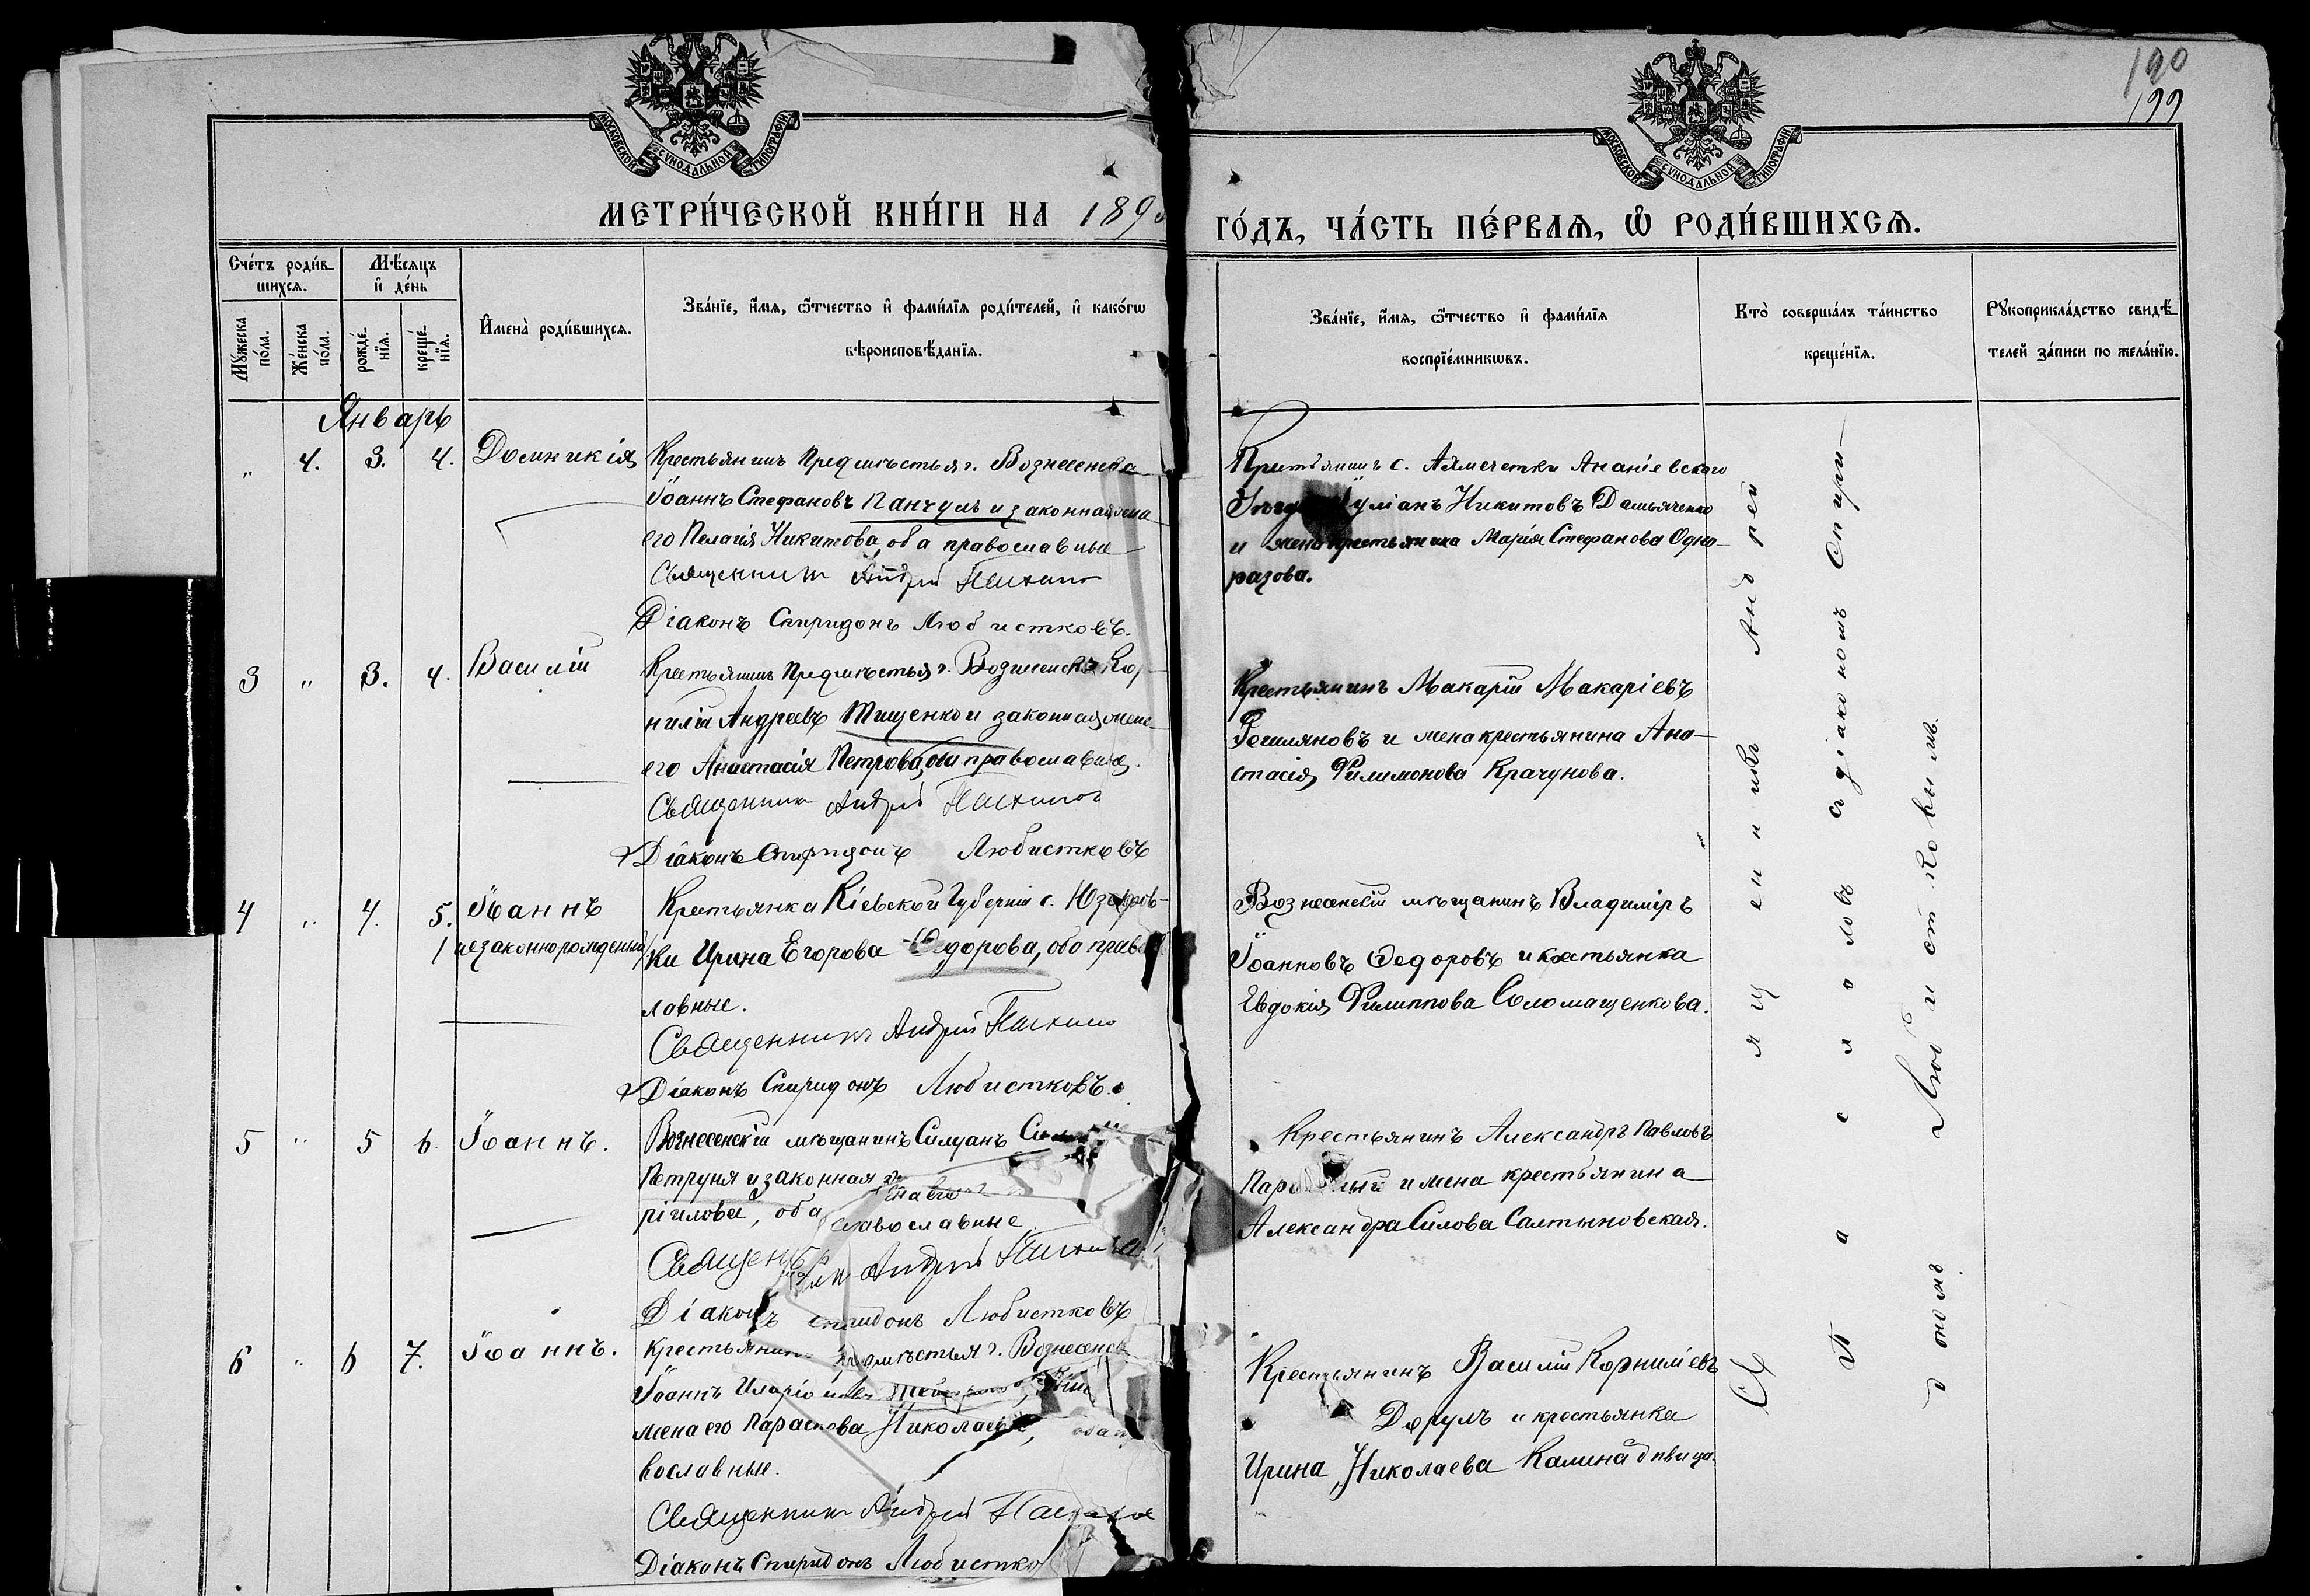 190
199
МОСКОВСКОЙ СУНОДАЛЬНОЙ ТИПОГРАФІИ
МОСКОВСКОЙ СУНОДАЛЬНОЙ ТИПОГРАФІИ
МЕТРИ́ЧЕСКОЙ КНИ́ГИ НА 189
ГО́ДЪ, ЧА́СТЬ ПЕ́РВАѦ, Ѡ РОДИ́ВШИХСѦ.
Сче́тъ роди́вшихсѧ.
Мꙋ́жеска по́ла.
Же́нска по́ла.
Мѣ́сѧцъ и҆ де́нь
рожде́нїѧ.
креще́нїѧ.
И҆мена̀ роди́вшихсѧ.
Зва́нїе, и҆́мѧ, ѻ҆́тчество и҆ фами́лїѧ роди́телей, и҆ како́гѡ
вѣроисповѣ́данїѧ.
Зва́нїе, и҆́мѧ, ѻ҆́тчество и҆ фами́лїѧ
воспрїе́мникѡвъ.
Кто̀ соверша́лъ та́инство
креще́нїѧ.
Рꙋкоприкла́дство свидѣ́-
телей за́писи по жела́нїю.
Январь
" 4. 3. 4. Домникія
Крестьянинъ Предмѣстья г. Вознесенска
Іоаннъ Стефановъ Панчулъ и законная жена
его Пелагія Никитова, оба православные
Священникъ Андрей
Діаконъ Спиридонъ Любистковъ.
Крестьянинъ с. Аямечетки Ананіевскаго
Никитовъ Демьяченко
и жена крестьянина Марія Стефанова Одно-
разова.
3 " 3. 4. Василій
Крестьянинъ Предмѣстья г. Вознесенска Кор-
нилій Андреевъ Тищенко и законная жена
его Анастасія Петрова, оба православные.
Священникъ Андрей
Діаконъ Спиридонъ Любистковъ
Крестьянинъ Макарій Макаріевъ
и жена крестьянина Ана-
стасія Филимонова Крачунова.
4 " 4. 5. Іоаннъ
/незаконнорожденный/
Крестьянка Кіевской Губерніи с.
ки Ирина Егорова Ѳедорова, оба правос
лавные.
Священникъ Андрей
Діаконъ Спиридонъ Любистковъ.
Вознесенскій мѣщанинъ Владиміръ
Іоанновъ Ѳедоровъ и крестьянка
Евдокія Филиппова Соломащенкова.
5 " 5 6. Іоаннъ.
Вознесенскій мѣщанинъ Силуанъ
Петруня и законная
оба православные
Священникъ Андрей
Діаконъ Спиридонъ Любистковъ
Крестьянинъ Александръ Павловъ
и жена крестьянина
Александра Силова Салтыновская.
6 " 6 7. Іоаннъ.
Крестьянинъ предмѣстья г. Вознесенска
Іоаннъ Иларіоновъ
жена его Параскева Николаева, оба пра
вославные.
Священникъ Андрей
Діаконъ Спиридонъ Любистков
Крестьянинъ Василій Корниліевъ
Дорулъ и крестьянка
Ирина Николаева Калина девица.
Священникъ Андрей
съ діакономъ Спири-
дономъ Любистковымъ.